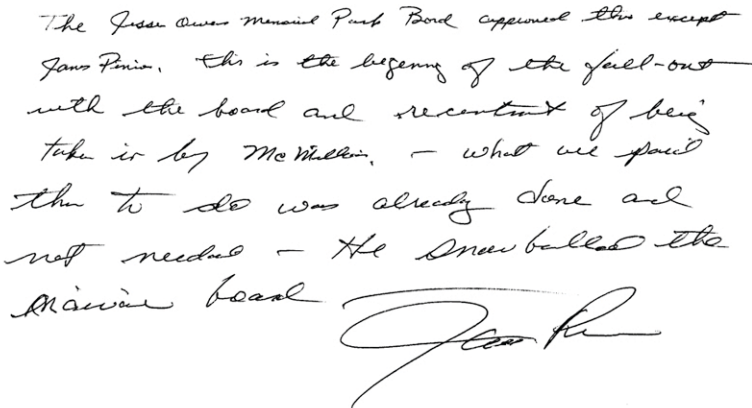 The Jesse Owens Memorial Park Bord approved this except
James Pinion. This is the begenny of the fall-out
with the board and resentment of being
taken in by McMillan. – what we paid
them to do was already done and
not needed – He snowballed the
board
James Pinion